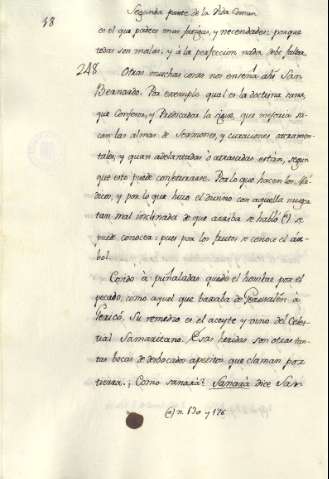 48
Segunda parte de la Vida Comun
en el que padece unas fatigas, y necedades: porque
todas son malas, y à la perfeccion nada debe faltar.
248. Otras muchas cosas nos enseña ahi San
Bernardo. Por exemplo qual es la doctrina sana,
que Confesor, y Predicador la sigue, que mejoria sa-
can las almas de Sermones, y curaciones sacramen-
tales, y quan adelantadas ò atrasadas estàn, segun
que esto puede conjeturarse. Por lo que hacen los Mè-
dicos, y por lo que hizo el divino con aquella muger
tam mal inclinada de que arriba se hablò (*) se
puede conocer: pues por los frutos se conoce el àr-
bol.
Cosido à puñaladas quedò el hombre por el
pecado, como aquel que baxaba de Jerusalèn à
Jericò. Su remedio es el aceyte y vino del Celes-
tial Samaritano. Esas heridas son otras tan-
tas bocas de desbocados apetitos que claman por
tierra. ¿Como sanarà? Sanarà dice San
(*) n. 130 y 176